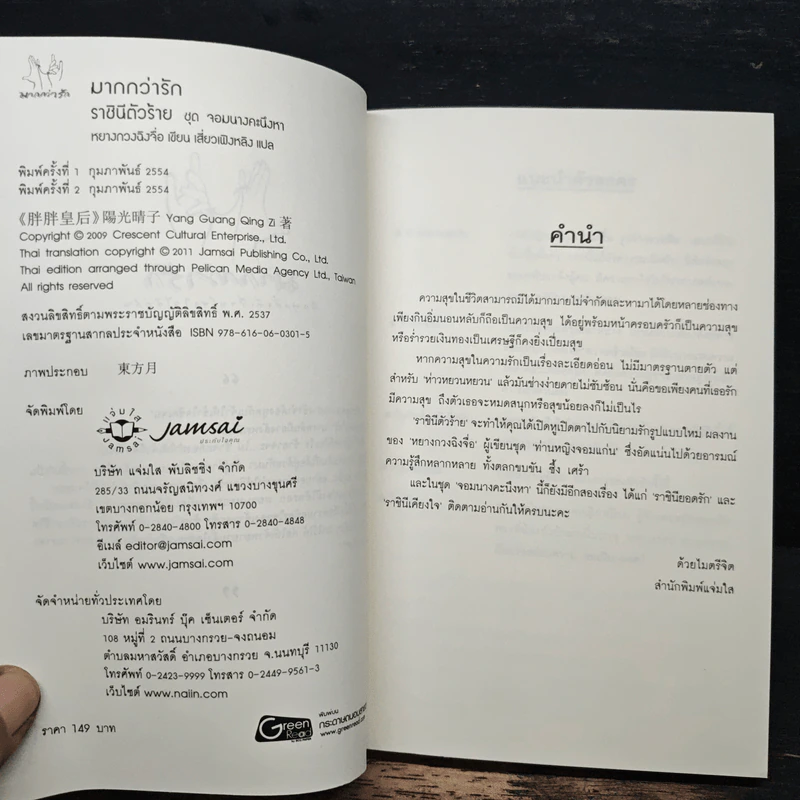 มากกว่ารัก
มากกว่ารัก
ราชินีตัวร้าย ชุด จอมนางคะนึงหา
หยางกวงฉิงจื่อ เขียน เสี่ยวเฟิงหลิง แปล
พิมพ์ครั้งที่ 1 กุมภาพันธ์ 2554
พิมพ์ครั้งที่ 2 กุมภาพันธ์ 2554
《胖胖皇后》陽光晴子 Yang Guang Qing Zi 著
Copyright © 2009 Crescent Cultural Enterprise., Ltd.
Thai translation copyright © 2011 Jamsai Publishing Co., Ltd.
Thai edition arranged through Pelican Media Agency Ltd., Taiwan
All rights reserved
สงวนลิขสิทธิ์ตามพระราชบัญญัติลิขสิทธิ์ พ.ศ. 2537
เลขมาตรฐานสากลประจำหนังสือ ISBN 978-616-06-0301-5
ภาพประกอบ 東方月
จัดพิมพ์โดย
แจ่มใส
Jamsai
Jamsai
ประดับใจคุณ
บริษัท แจ่มใส พับลิชชิ่ง จำกัด
285/33 ถนนจรัญสนิทวงศ์ แขวงบางขุนศรี
เขตบางกอกน้อย กรุงเทพฯ 10700
โทรศัพท์ 0-2840-4800 โทรสาร 0-2840-4848
อีเมล์ editor@jamsai.com
เว็บไซต์ www.jamsai.com
จัดจำหน่ายทั่วประเทศโดย
บริษัท อมรินทร์ บุ๊ค เซ็นเตอร์ จำกัด
108 หมู่ที่ 2 ถนนบางกรวย-จงถนอม
ตำบลมหาสวัสดิ์ อำเภอบางกรวย จ.นนทบุรี 11130
โทรศัพท์ 0-2423-9999 โทรสาร 0-2449-9561-3
เว็บไซต์ www.naiin.com
ราคา 149 บาท
Green
Read
พิมพ์บน
กระดาษถนอมสายตา
www.greenread
คำนำ
ความสุขในชีวิตสามารถมีได้มากมายไม่จำกัดและหามาได้โดยหลายช่องทาง
เพียงกินอิ่มนอนหลับก็ถือเป็นความสุข ได้อยู่พร้อมหน้าครอบครัวก็เป็นความสุข
หรือร่ำรวยเงินทองเป็นเศรษฐีก็คงยิ่งเปี่ยมสุข
หากความสุขในความรักเป็นเรื่องละเอียดอ่อน ไม่มีมาตรฐานตายตัว แต่
สำหรับ 'ห่าวหยวนหยวน' แล้วมันช่างง่ายดายไม่ซับซ้อน นั่นคือขอเพียงคนที่เธอรัก
มีความสุข ถึงตัวเธอจะหมดสนุกหรือสุขน้อยลงก็ไม่เป็นไร
'ราชินีตัวร้าย' จะทำให้คุณได้เปิดหูเปิดตาไปกับนิยามรักรูปแบบใหม่ ผลงาน
ของ 'หยางกวงฉิงจื่อ' ผู้เขียนชุด 'ท่านหญิงจอมแก่น' ซึ่งอัดแน่นไปด้วยอารมณ์
ความรู้สึกหลากหลาย ทั้งตลกขบขัน ซึ้ง เศร้า
และในชุด 'จอมนางคะนึงหา' นี้ก็ยังมีอีกสองเรื่อง ได้แก่ 'ราชินียอดรัก' และ
'ราชินีเคียงใจ' ติดตามอ่านกันให้ครบนะคะ
ด้วยไมตรีจิต
สำนักพิมพ์แจ่มใส